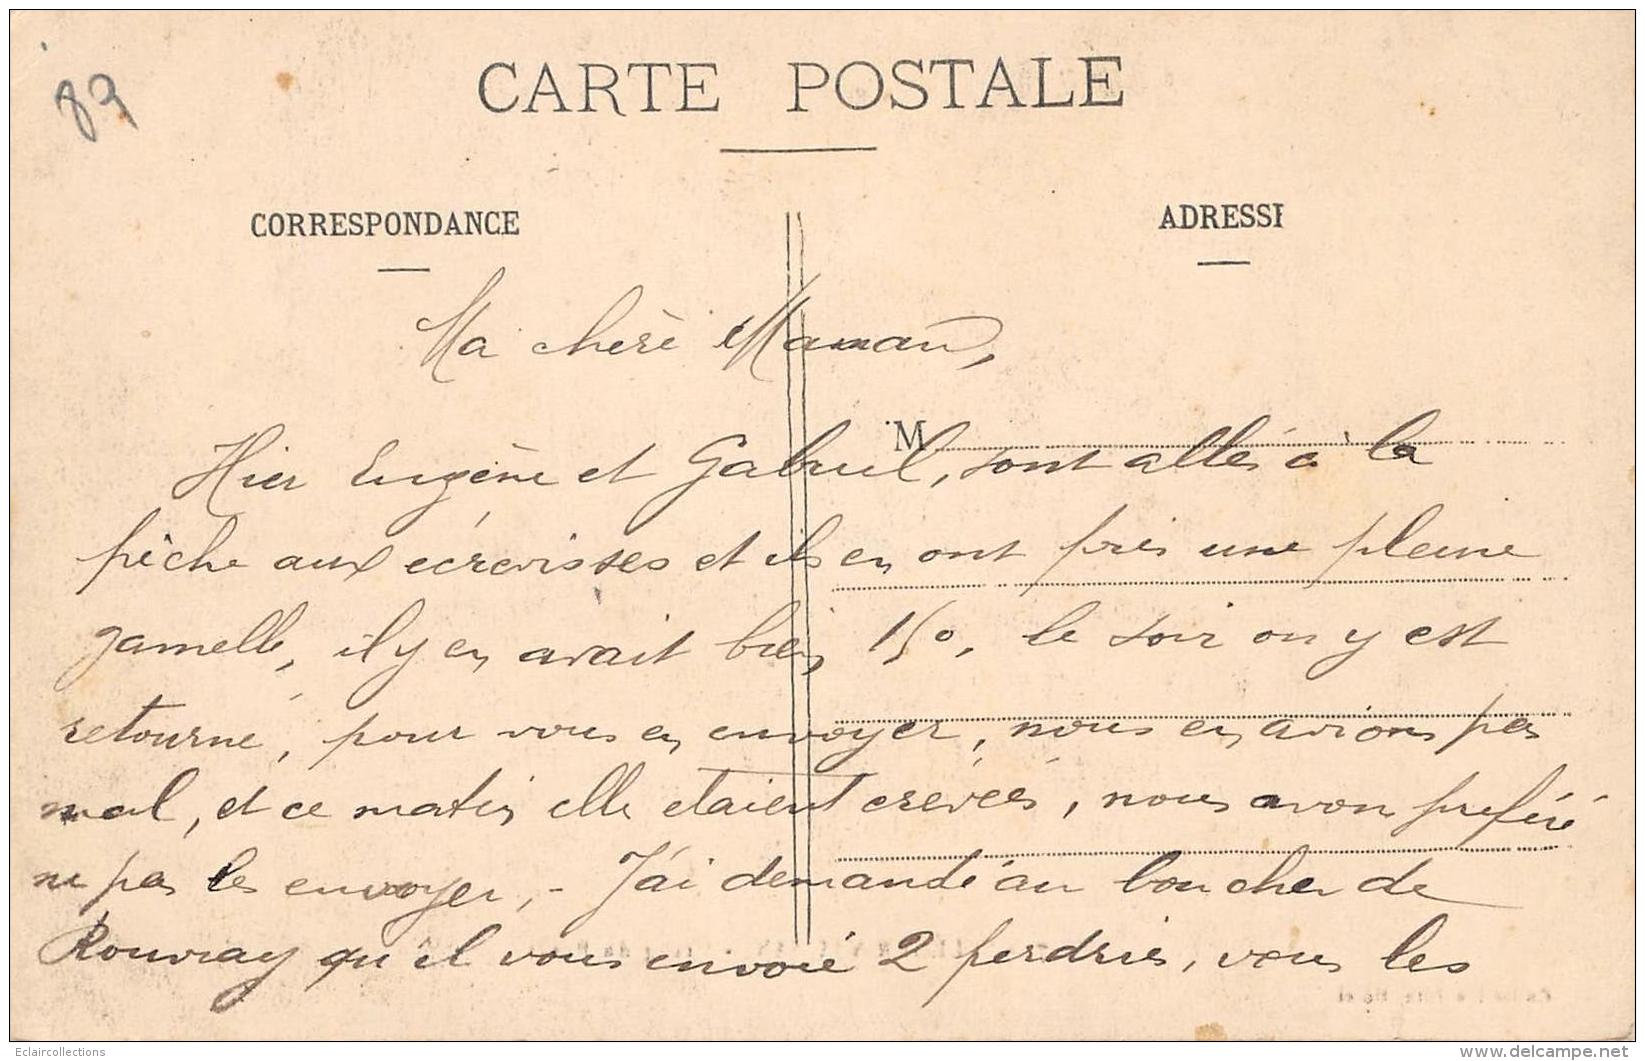 89
CARTE POSTALE
CORRESPONDANCE
ADRESSE
Ma chère Maman,
M
Hier Eugène et Gabriel, sont allés à la
pêche aux écrevisses et ils en ont pris une pleine
gamelle, il y en avait bien 150, le soir on y est
retourné, pour vous en envoyer, nous en avions pas
mal, et ce matin elle etaient crevées, nous avons preféré
ne pas les envoyer, - J'ai demandé au boucher de
Rouvray qu'il vous envoié 2 perdries, vous les
Eclaircollections
delcampe.net